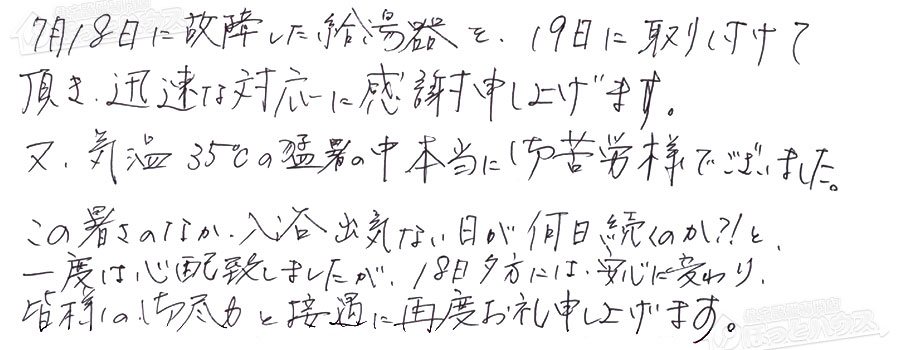 7月18日に故障した給湯器を、19日に取り付けて
頂き、迅速な対応に感謝申し上げます。
又、気温35℃の猛暑の中本当に御苦労様でございました。
この暑さのなか、入浴出気ない日が何日続くのか?!と、
一度は心配致しましたが、18日夕方には、安心に変わり、
皆様の御尽力と接遇に再度お礼申し上げます。